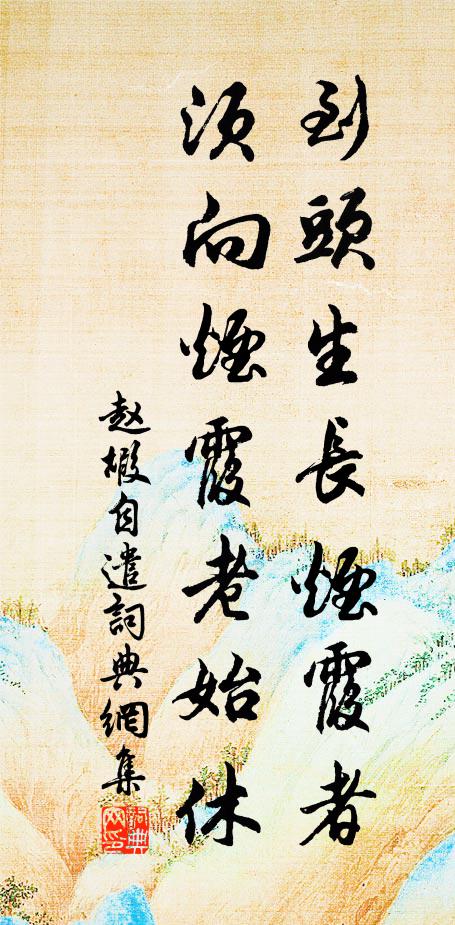 到頭生長煙霞者
須向煙霞老始休
赵嘏自遣詞典網集
詞典網印